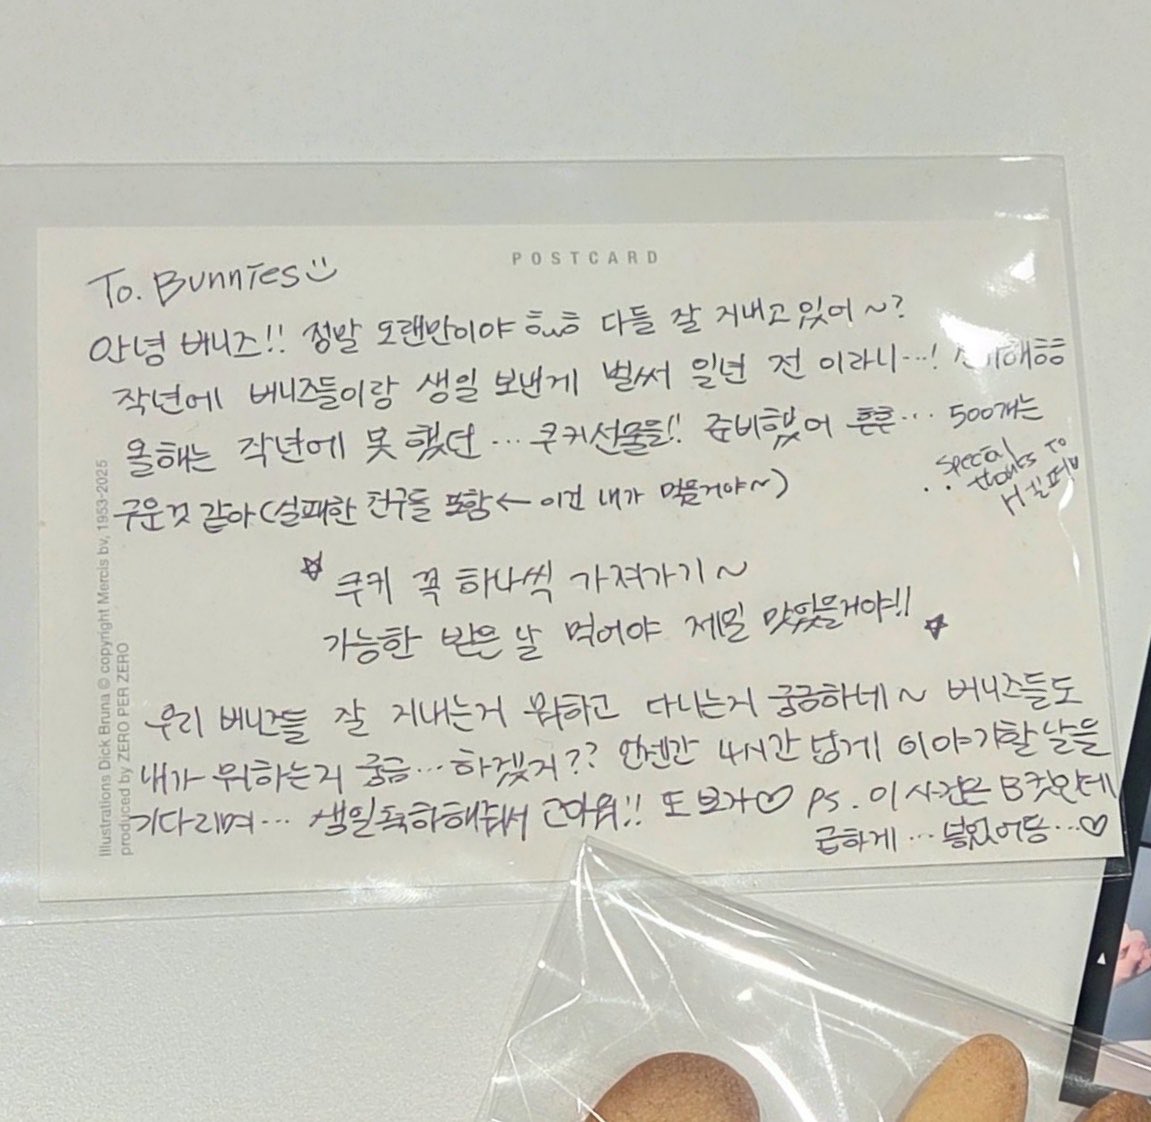 POSTCARD
To. Bunnies
안녕 버니즈!! 정말 오랜만이야 ㅎuㅎ 다들 잘 지내고 있어~?
작년에 버니즈들이랑 생일 보낸게 벌써 일년 전 이라니...!
올해는 작년에 못 했던 ... 쿠키선물을!! 준비했어 흔흔... 500개는
구운것 같아 (실패한 친구들 포함 ← 이건 내가 먹을거야~)
special
thanks to
☆ 쿠키 꼭 하나씩 가져가기~
가능한 받은 날 먹어야 제일 맛있을거야!! ☆
우리 버니즈들 잘 지내는거 뭐하고 다니는거 궁금하네~ 버니즈들도
내가 뭐하는지 궁금...하겠지?? 언젠간 4시간 넘게 이야기할 날을
기다리며... 생일축하해줘서 고마워!! 또 보자♡ PS. 이 사진은 B컷인데
급하게 ... 넣었어둉...♡
Illustrations Dick Bruna © copyright Mercis bv, 1953-2025
produced by ZERO PER ZERO